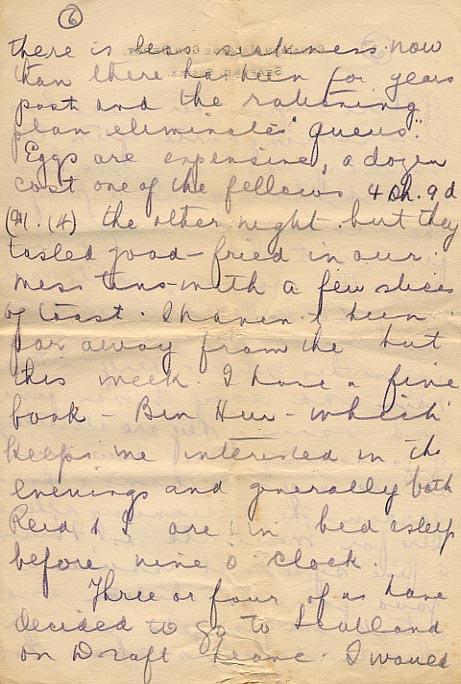 6
there is less sickness now
than there has been for years
past and the rationing
plan eliminates "queus".
Eggs are expensive, a dozen
cost one of the fellows 4 sh. 9 d
($1.14) the other night but they
tasted good - fried in our
mess tins - with a few slices
of toast. I haven't been
far away from the hut
this week. I have a fine
book - Ben Hur - which
keeps me interested in the
evenings and generally both
Reid & I are in bed asleep
before nine o'clock.
Three or four of us have
decided to go to Scotland
on Draft Leave. I would